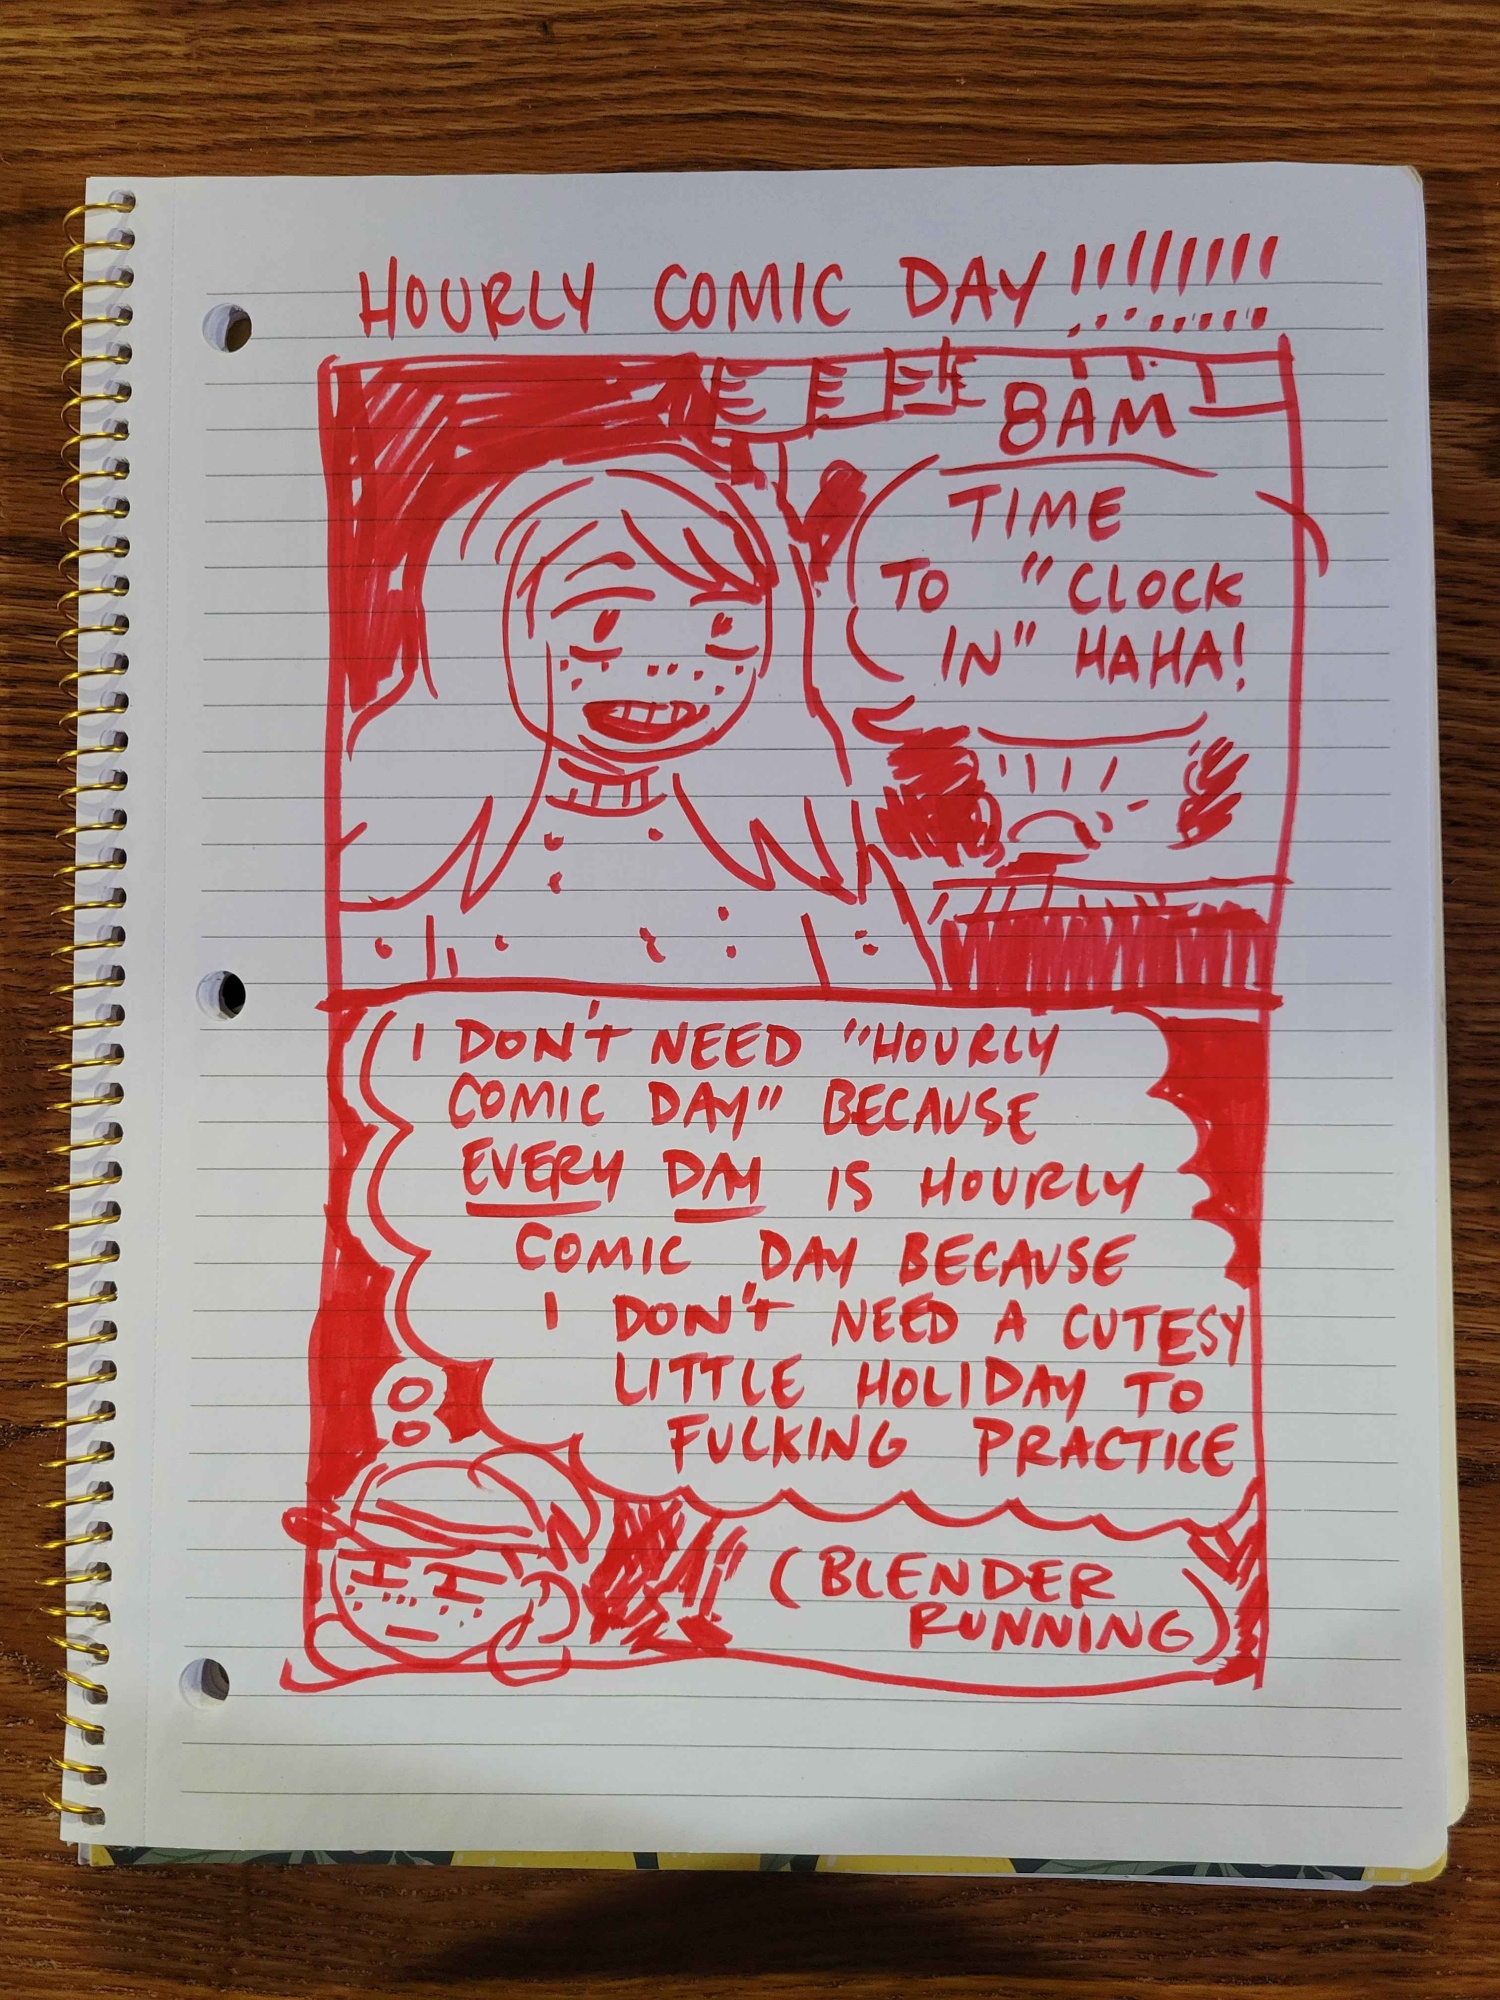 HOURLY COMIC DAY!!!!!!!!!
8AM
TIME
TO "CLOCK
IN" HAHA!
I DON'T NEED "HOURLY
COMIC DAY" BECAUSE
EVERY DAY IS HOURLY
COMIC DAY BECAUSE
I DON'T NEED A CUTESY
LITTLE HOLIDAY TO
FUCKING PRACTICE
(BLENDER
RUNNING)